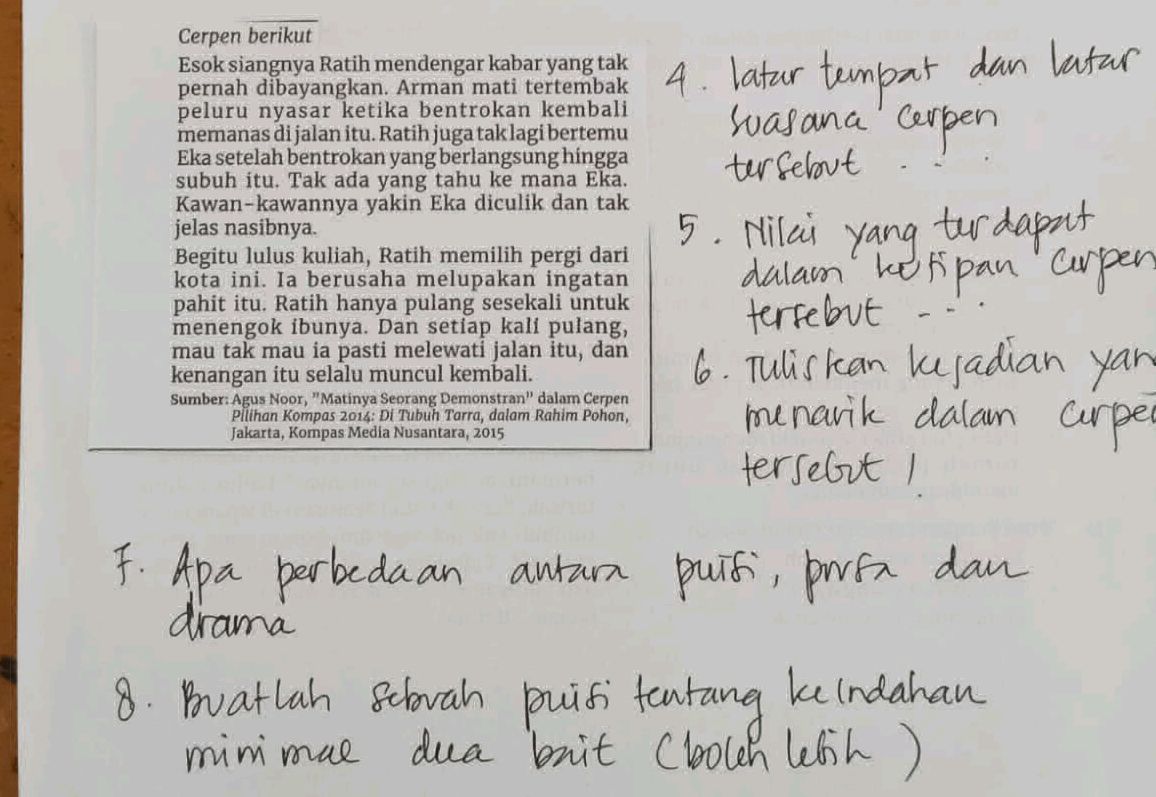 Cerpen berikut
Esok siangnya Ratih mendengar kabar yang tak
pernah dibayangkan. Arman mati tertembak
peluru nyasar ketika bentrokan kembali
memanas di jalan itu. Ratih juga tak lagi bertemu
Eka setelah bentrokan yang berlangsung hingga
subuh itu. Tak ada yang tahu ke mana Eka.
Kawan-kawannya yakin Eka diculik dan tak
jelas nasibnya.
Begitu lulus kuliah, Ratih memilih pergi dari
kota ini. Ia berusaha melupakan ingatan
pahit itu. Ratih hanya pulang sesekali untuk
menengok ibunya. Dan setiap kali pulang,
mau tak mau ia pasti melewati jalan itu, dan
kenangan itu selalu muncul kembali.
Sumber: Agus Noor, "Matinya Seorang Demonstran" dalam Cerpen
Pilihan Kompas 2014: Di Tubuh Tarra, dalam Rahim Pohon,
Jakarta, Kompas Media Nusantara, 2015
4. latar tempat dan latar
suasana cerpen
tersebut . . .
5. Nilai yang terdapat
dalam kutipan cerpen
tersebut - - .
6. Tuliskan kejadian yan
menarik dalam cerpe
tersebut !
7. Apa perbedaan antara puisi, prosa dan
drama
8. Buatlah sebuah puisi tentang keindahan
minimal dua bait (boleh lebih)